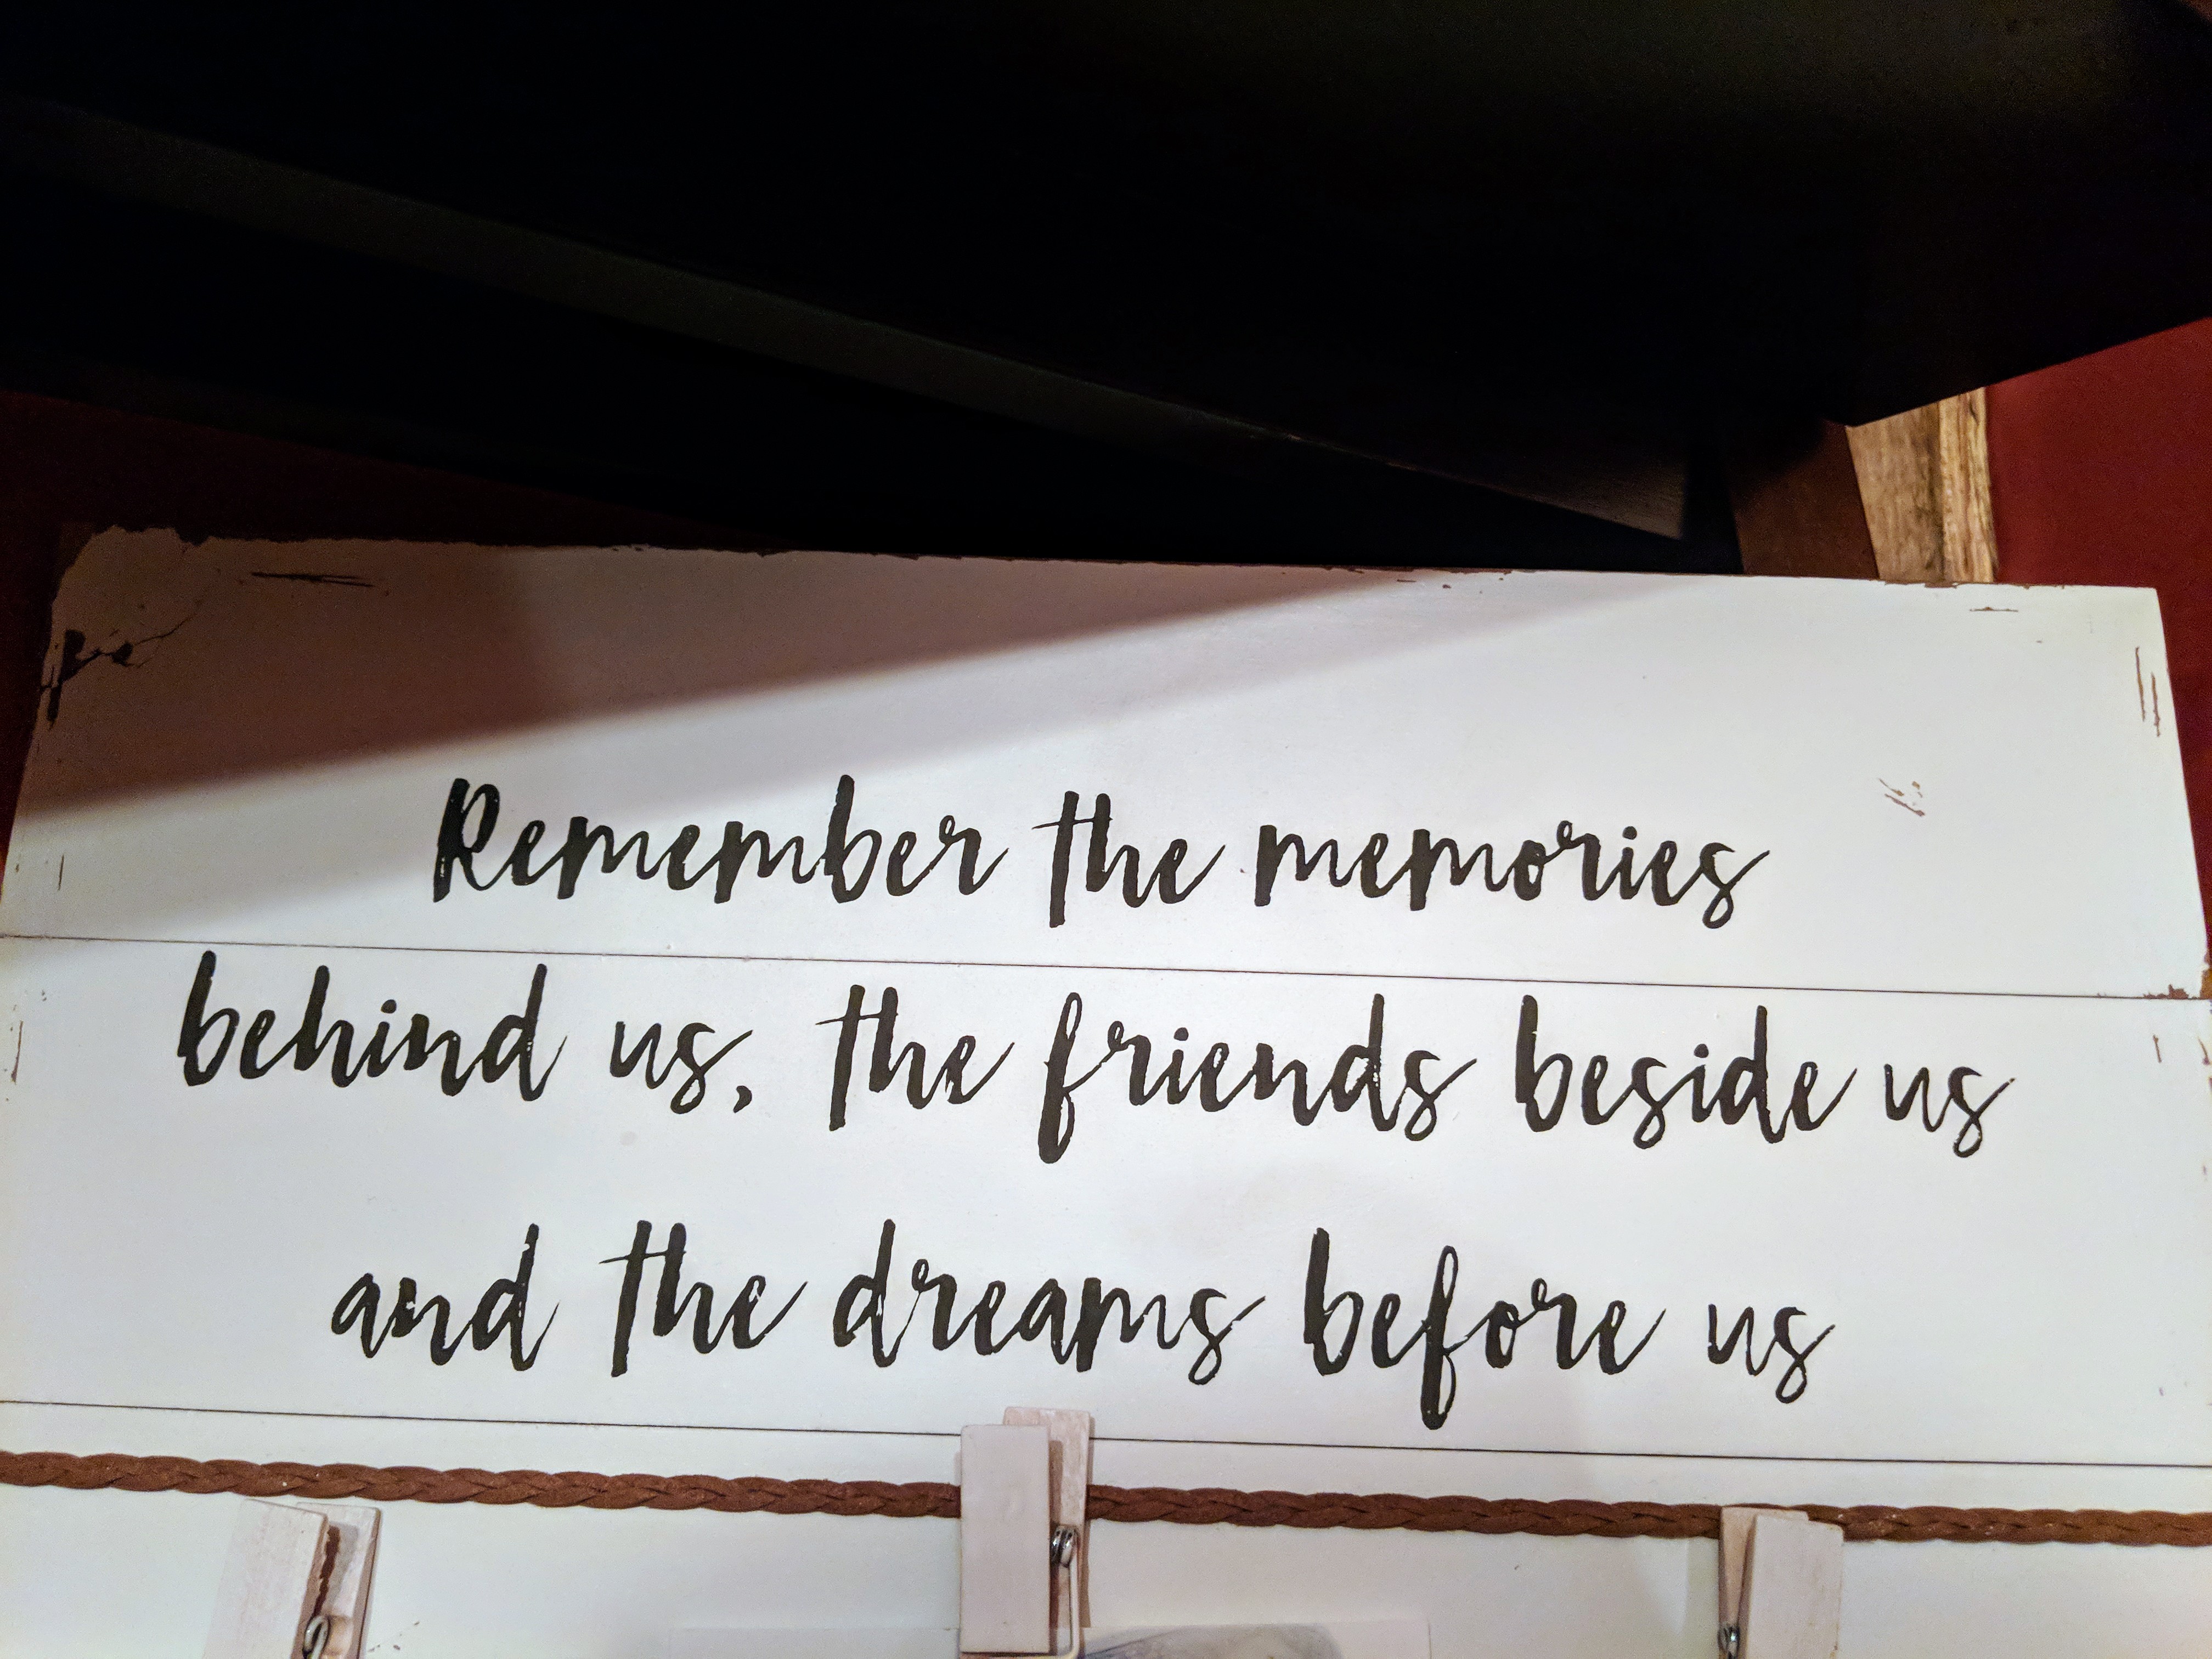 Remember the memories
behind us, the friends beside us
and the dreams before us